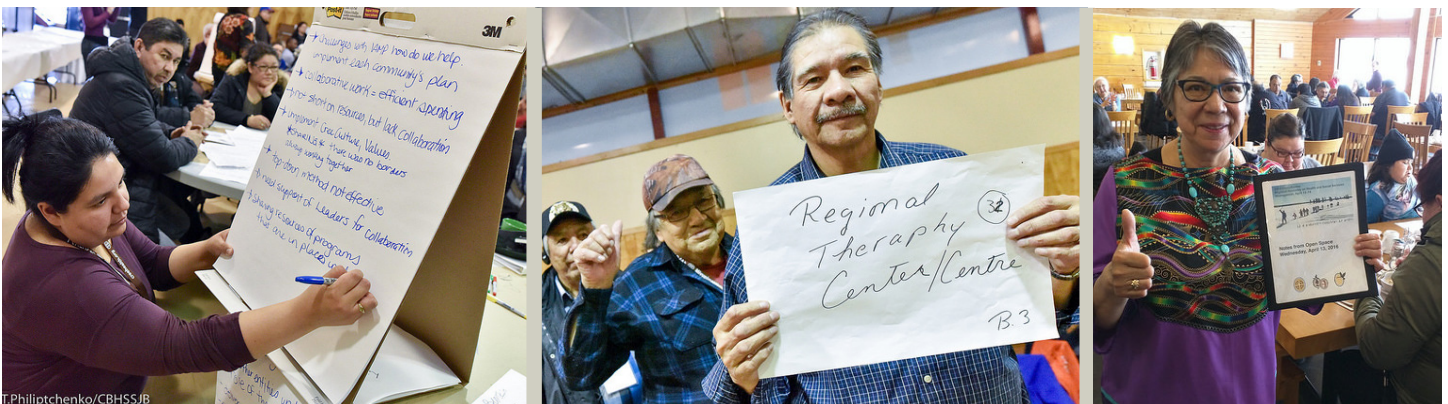 Post-it
3M
* challenges with WMP how do we help
implement each community's plan
* collaborative work = efficient spending
* not short on resources, but lack collaboration
* implement Cree Culture, Values
there was no borders
working together
* Top-down method not effective
* need support of Leaders for collaboration
* sharing resources of programs
that are in place
T.Philiptchenko/CBHSSJB
Regional
32
Theraphy
Center/Centre
B.3
Notes from Open Space
Wednesday, April 13, 2016